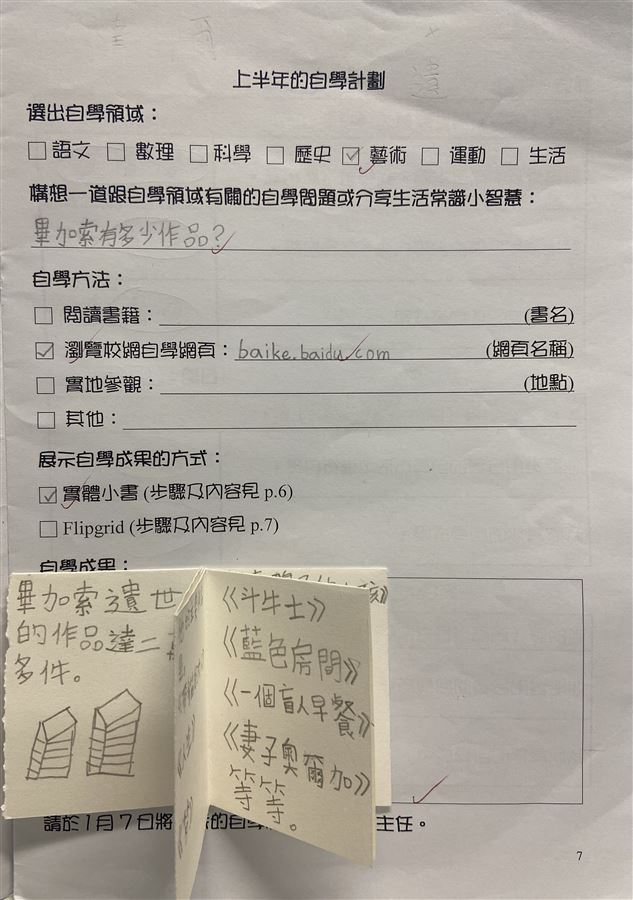 上半年的自學計劃
選出自學領域：
語文 數理 科學 歷史 藝術 運動 生活
構想一道跟自學領域有關的自學問題或分享生活常識小智慧：
畢加索有多少作品？
自學方法：
閱讀書籍： (書名)
瀏覽校網自學網頁：baike.baidu.com (網頁名稱)
實地參觀： (地點)
其他：
展示自學成果的方式：
實體小書 (步驟及內容見 p.6)
Flipgrid (步驟及內容見 p.7)
自學成果：
畢加索遺世
的作品達二
多件。
《斗牛士》
《藍色房間》
《一個盲人早餐》
《妻子奧爾加》
等等。
請於1月7日將 的自學 主任。
7